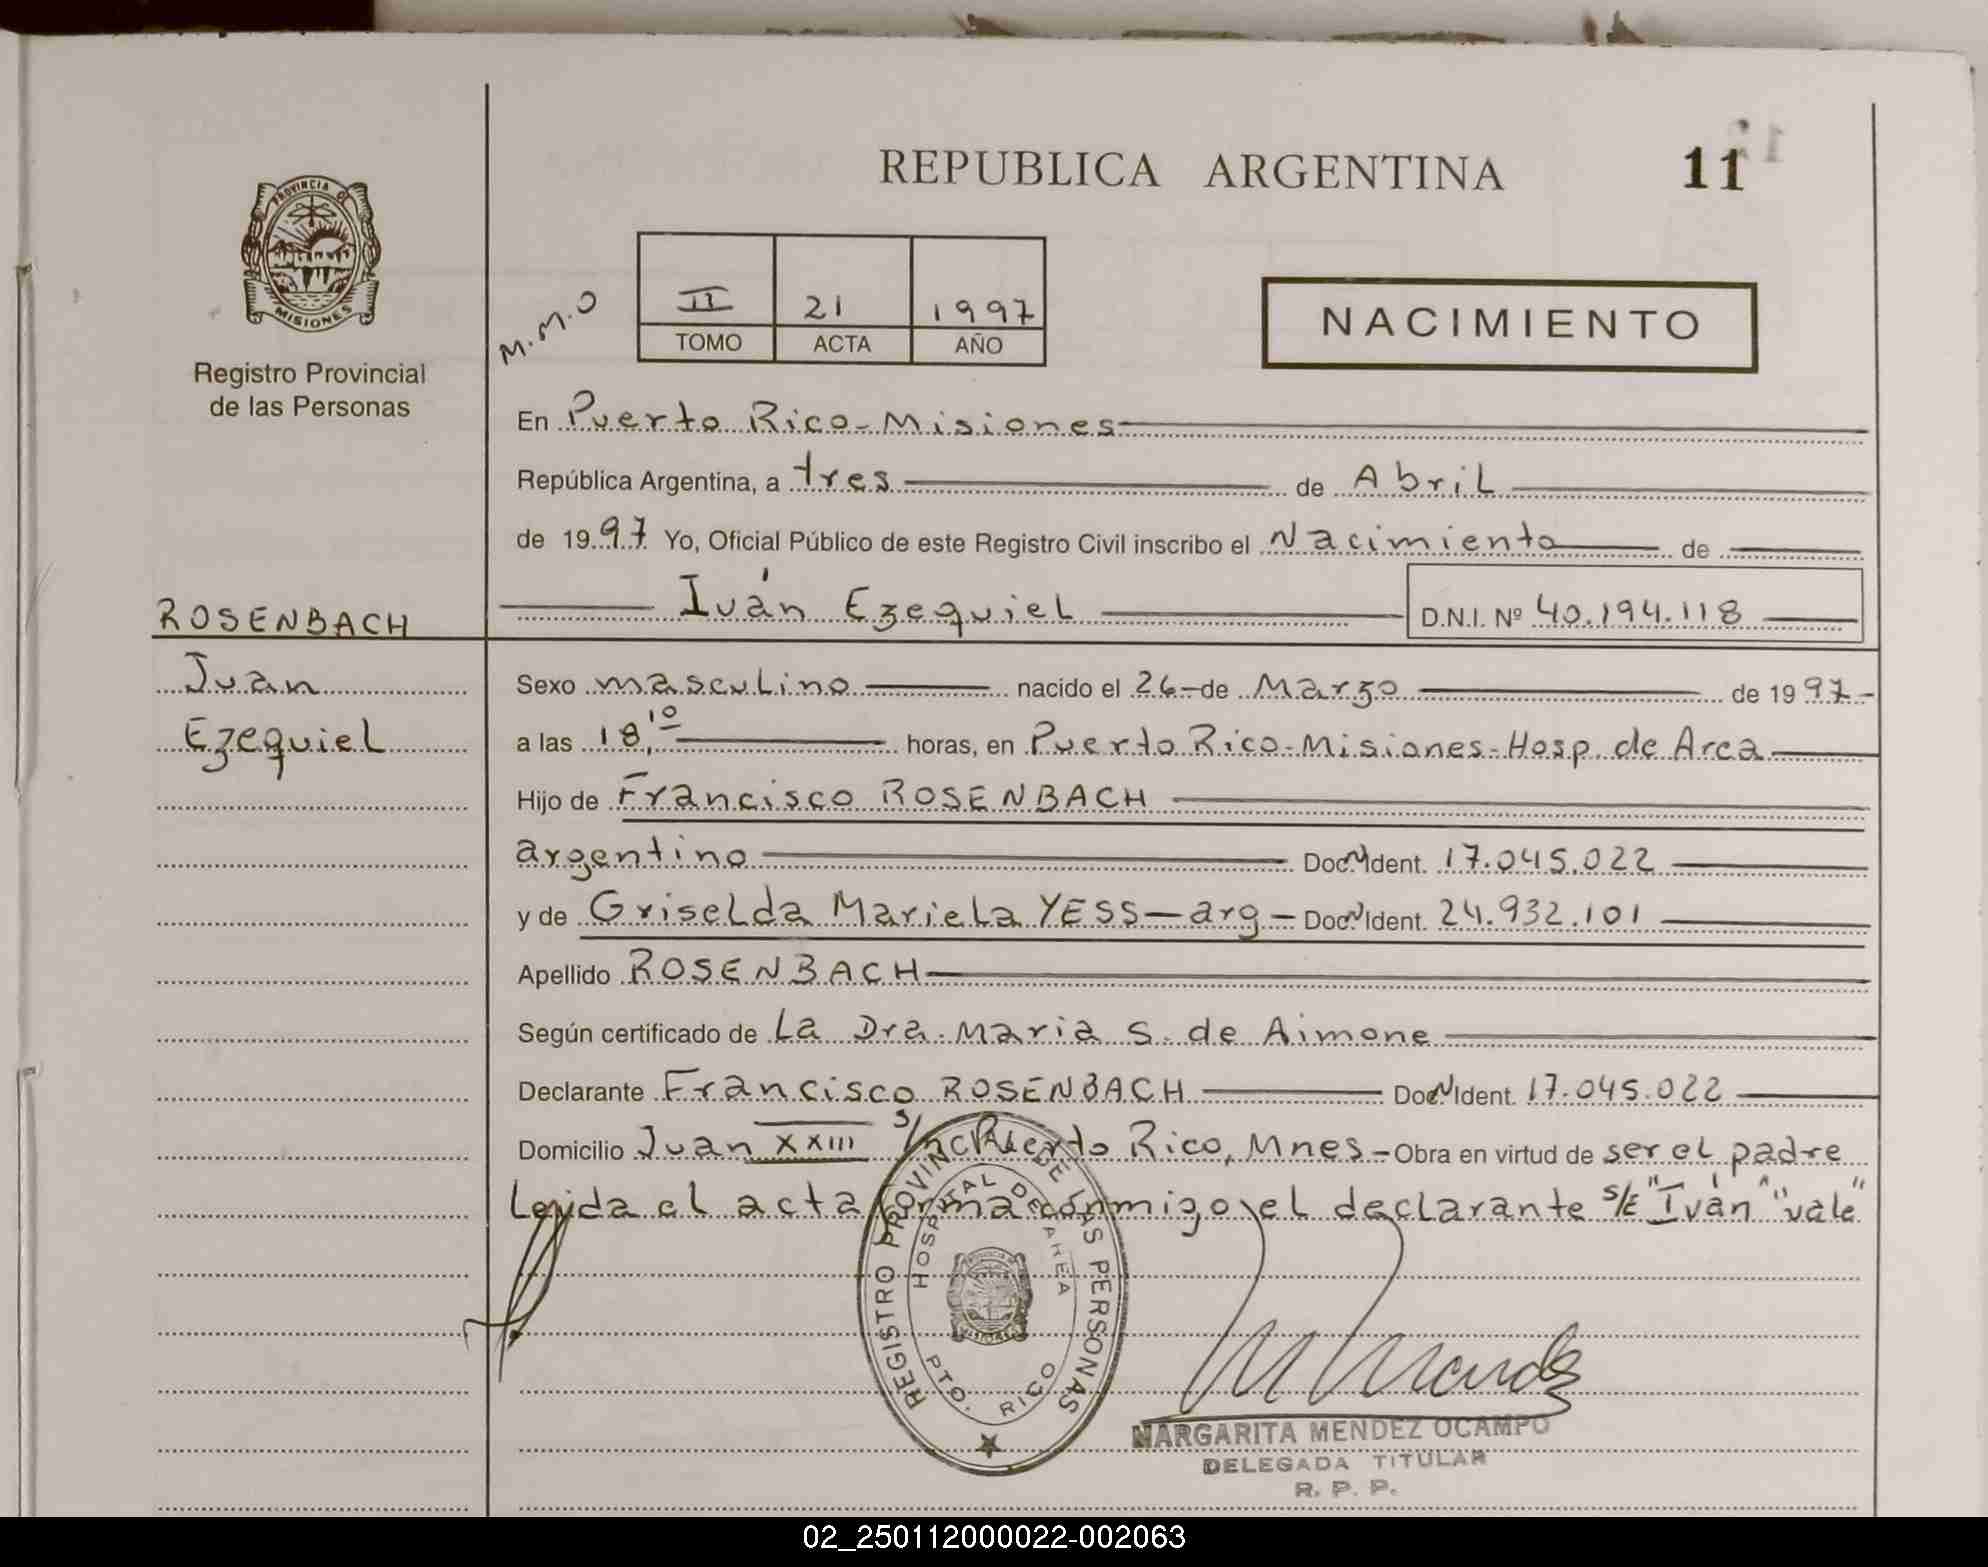 REPUBLICA ARGENTINA
11
PROVINCIA DE
MISIONES
Registro Provincial
de las Personas
M.M.O
II 21 1997
TOMO ACTA AÑO
NACIMIENTO
En Puerto Rico-Misiones
República Argentina, a tres de Abril
de 1997 Yo, Oficial Público de este Registro Civil inscribo el Nacimiento de
Iván Ezequiel D.N.I. Nº 40.194.118
ROSENBACH
Ivan
Ezequiel
Sexo masculino nacido el 26-de Marzo de 1997-
a las 18,10 horas, en Puerto Rico-Misiones-Hosp. de Area
Hijo de Francisco ROSENBACH
argentino Doc. N Ident. 17.045.022
y de Griselda Mariela YESS-arg- Doc. N Ident. 24.932.101
Apellido ROSENBACH
Según certificado de La Dra. Maria S. de Aimone
Declarante Francisco ROSENBACH Doc. N Ident. 17.045.022
Domicilio Juan XXIII s/n Puerto Rico, Mnes- Obra en virtud de ser el padre
Leida el acta firma conmigo el declarante s/E "Iván" "vale"
REGISTRO PROVINCIAL DE LAS PERSONAS
HOSPITAL DE AREA
PTO. RICO
MARGARITA MENDEZ OCAMPO
DELEGADA TITULAR
R. P. P.
02_250112000022-002063